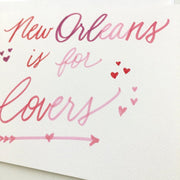 New Orleans
is for
lovers